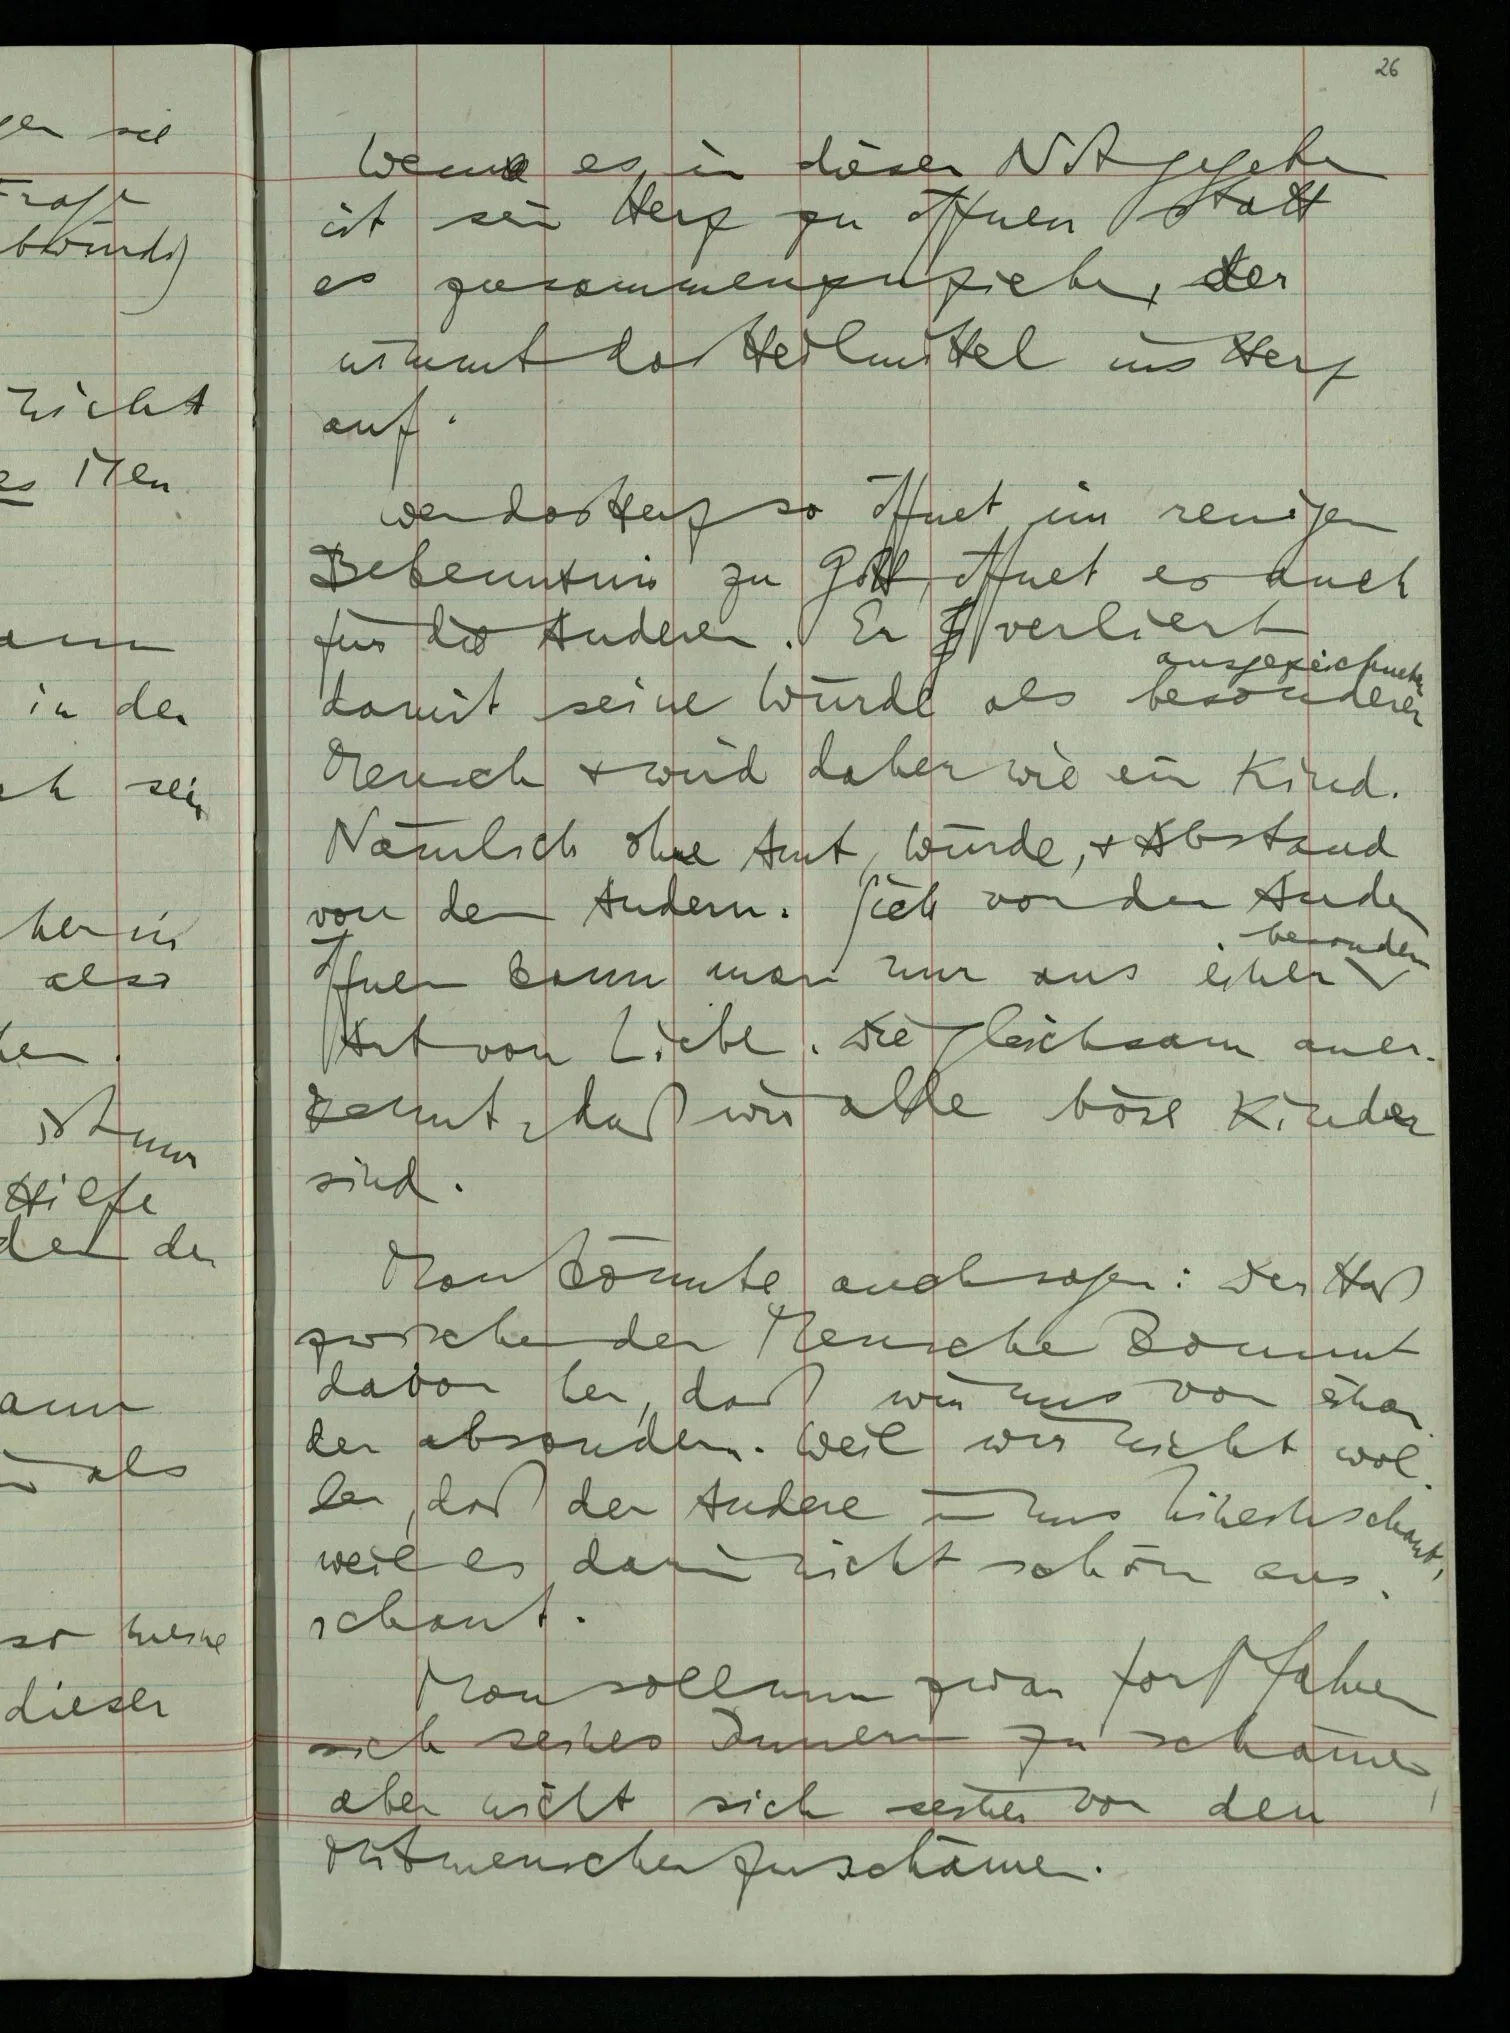 gen sie
Frage
bwürdig)
nicht
es Men
ann
in der
ch sein
her in
also
hen.
ist nur
Hilfe
den der
ann
als
so meine
dieser
26
Wem es in dieser Not gegeben
ist sein Herz zu öffnen statt
es zusammenzuziehen, der
nimmt das Heilmittel ins Herz
auf.
Wer das Herz so öffnet im reuigen
Bekenntnis zu Gott, öffnet es auch
für die Anderen. Er verliert
ausgezeichneter
damit seine Würde als besonderer
Mensch & wird daher wie ein Kind.
Nämlich ohne Amt, Würde, & Abstand
von den Andern. Sich vor den Andern
besondern
öffnen kann man nur aus einer
Art von Liebe. Die gleichsam aner-
kennt, daß wir alle böse Kinder
sind.
Man könnte auch sagen: Der Haß
zwischen den Menschen kommt
davon her, daß wir uns von einan-
der absondern. Weil wir nicht wol-
len, daß der Andere in uns hineinschaut,
weil es darin nicht schön aus-
schaut.
Man soll nun zwar fortfahren
sich seines Innern zu schämen,
aber nicht sich seiner vor den
Mitmenschen zu schämen.